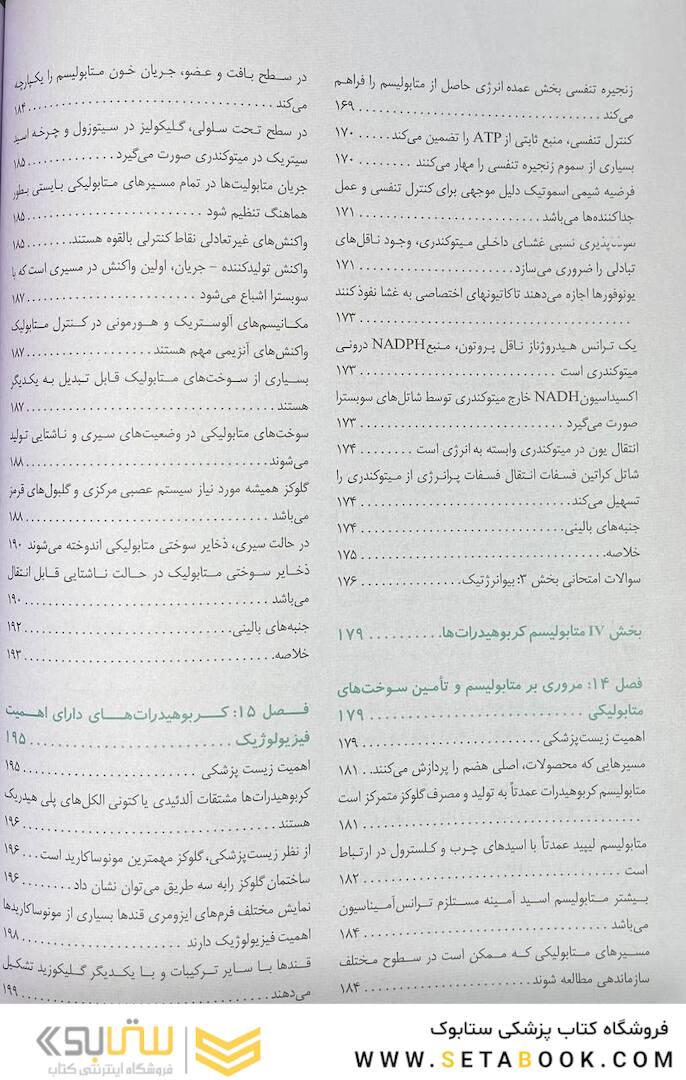 زنجیره تنفسی بخش عمده انرژی حاصل از متابولیسم را فراهم
می‌کند ..................................... ۱۶۹
کنترل تنفسی، منبع ثابتی از ATP را تضمین می‌کند..... ۱۷۰
بسیاری از سموم زنجیره تنفسی را مهار می‌کنند ........ ۱۷۰
فرضیه شیمی اسموتیک دلیل موجهی برای کنترل تنفسی و عمل
جداکننده‌ها می‌باشد ........................... ۱۷۱
پذیری نسبی غشای داخلی میتوکندری، وجود ناقل‌های
تبادلی را ضروری می‌سازد........................ ۱۷۱
یونوفورها اجازه می‌دهند تا کاتیونهای اختصاصی به غشا نفوذ کنند
..................................... ۱۷۳
یک ترانس هیدروژناز ناقل پروتون، منبع NADPH درونی
میتوکندری است .............................. ۱۷۳
اکسیداسیون NADH خارج میتوکندری توسط شاتل‌های سوبسترا
صورت می‌گیرد ............................... ۱۷۳
انتقال یون در میتوکندری وابسته به انرژی است ........ ۱۷۴
شاتل کراتین فسفات انتقال فسفات پرانرژی از میتوکندری را
تسهیل می‌کند............................... ۱۷۴
جنبه‌های بالینی.............................. ۱۷۴
خلاصه..................................... ۱۷۵
سوالات امتحانی بخش ۳: بیوانرژتیک................ ۱۷۶
بخش IV متابولیسم کربوهیدرات‌ها.......... ۱۷۹
فصل ۱۴: مروری بر متابولیسم و تأمین سوخت‌های
متابولیکی ........................... ۱۷۹
اهمیت زیست‌پزشکی............................ ۱۷۹
مسیرهایی که محصولات، اصلی هضم را پردازش می‌کنند.. ۱۸۱
متابولیسم کربوهیدرات عمدتاً به تولید و مصرف گلوکز متمرکز است
..................................... ۱۸۱
متابولیسم لیپید عمدتاً با اسیدهای چرب و کلسترول در ارتباط
است ..................................... ۱۸۲
بیشتر متابولیسم اسید آمینه مستلزم ترانس‌آمیناسیون
می‌باشد ................................... ۱۸۴
مسیرهای متابولیکی که ممکن است در سطوح مختلف
سازماندهی مطالعه شوند......................... ۱۸۴
در سطح بافت و عضو، جریان خون متابولیسم را یکپارچه
می‌کند ................................... ۱۸۴
در سطح تحت سلولی، گلیکولیز در سیتوزول و چرخه اسید
سیتریک در میتوکندری صورت می‌گیرد............. ۱۸۵
جریان متابولیت‌ها در تمام مسیرهای متابولیکی بایستی بطور
هماهنگ تنظیم شود .......................... ۱۸۵
واکنش‌های غیرتعادلی نقاط کنترلی بالقوه هستند........ ۱۸۵
واکنش تولیدکننده – جریان، اولین واکنش در مسیری است که با
سوبسترا اشباع می‌شود ........................ ۱۸۷
مکانیسم‌های آلوستریک و هورمونی در کنترل متابولیک
واکنش‌های آنزیمی مهم هستند ................... ۱۸۷
بسیاری از سوخت‌های متابولیک قابل تبدیل به یکدیگر
هستند ................................... ۱۸۷
سوخت‌های متابولیکی در وضعیت‌های سیری و ناشتایی تولید
می‌شوند................................... ۱۸۸
گلوکز همیشه مورد نیاز سیستم عصبی مرکزی و گلبول‌های قرمز
می‌باشد ................................... ۱۸۸
در حالت سیری، ذخایر سوختی متابولیکی اندوخته می‌شوند ۱۹۰
ذخایر سوختی متابولیک در حالت ناشتایی قابل انتقال
می‌باشد ................................... ۱۹۰
جنبه‌های بالینی.............................. ۱۹۲
خلاصه..................................... ۱۹۳
فصل ۱۵: کربوهیدرات‌های دارای اهمیت
فیزیولوژیک ........................... ۱۹۵
اهمیت زیست پزشکی .......................... ۱۹۵
کربوهیدرات‌ها مشتقات آلدئیدی یا کتونی الکل‌های پلی هیدریک
هستند ................................... ۱۹۶
از نظر زیست‌پزشکی، گلوکز مهمترین مونوساکارید است... ۱۹۶
ساختمان گلوکز را به سه طریق می‌توان نشان داد........ ۱۹۶
نمایش مختلف فرم‌های ایزومری قندها بسیاری از مونوساکاریدها
اهمیت فیزیولوژیک دارند ...................... ۱۹۸
قندها با سایر ترکیبات و با یکدیگر گلیکوزید تشکیل
می‌دهند................................... ۱۹۹
ستابوک
فروشگاه اینترنتی کتاب
فروشگاه کتاب پزشکی ستابوک
WWW.SETABOOK.COM